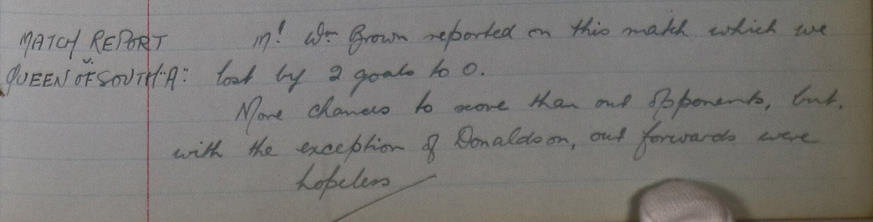 MATCH REPORT Mr. Wm Brown reported on this match which we
v.
QUEEN OF SOUTH "A": lost by 2 goals to 0.
More chances to score than our opponents, but,
with the exception of Donaldson, our forwards were
hopeless